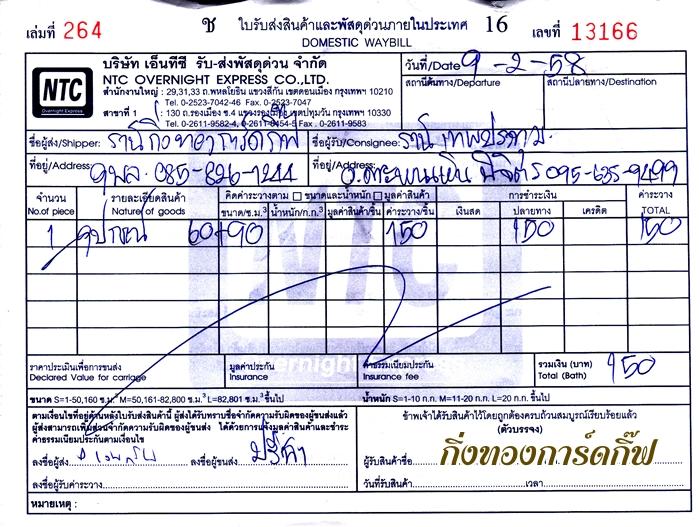 เล่มที่ 264
ช ใบรับส่งสินค้าและพัสดุด่วนภายในประเทศ 16
เลขที่ 13166
DOMESTIC WAYBILL
NTC
Overnight Express
บริษัท เอ็นทีซี รับ-ส่งพัสดุด่วน จำกัด
NTC OVERNIGHT EXPRESS CO.,LTD.
สำนักงานใหญ่ : 29,31,33 ถ.พหลโยธิน แขวงสีกัน เขตดอนเมือง กรุงเทพฯ 10210
Tel. 0-2523-7042-46 Fax. 0-2523-7047
สาขาที่ 1 : 130 ถ.รองเมือง ซ.4 แขวงรองเมือง เขตปทุมวัน กรุงเทพฯ 10330
Tel. 0-2611-9582-4, 0-2611-8454-5 Fax. 0-2611-9583
วันที่/Date 9-2-58
สถานีต้นทาง/Departure สถานีปลายทาง/Destination
ชื่อผู้ส่ง/Shipper: ร้านกิ่งทองการ์ดกิ๊ฟ
ชื่อผู้รับ/Consignee: ร้าน เทพประทาน
ที่อยู่/Address: 085-826-1244
ที่อยู่/Address: อ.ตะพานหิน พิจิตร 095-635-9499
จำนวน No.of piece
รายละเอียดสินค้า Nature of goods
คิดค่าระวางตาม ขนาดและน้ำหนัก มูลค่าสินค้า
ขนาด/ซ.ม.³ น้ำหนัก/ก.ก.³ มูลค่าสินค้า/ชิ้น ค่าระวาง/ชิ้น
การชำระเงิน
เงินสด ปลายทาง เครดิต
ค่าระวาง TOTAL
1 อุปกรณ์ 60+90 150 150 150
NTC
Overnight Express
ราคาประเมินเพื่อการขนส่ง
Declared Value for carriage
มูลค่าประกัน
Insurance
ค่าธรรมเนียมประกัน
Insurance fee
รวมเงิน (บาท)
Total (Bath) 150
ขนาด S=1-50,160 ซ.ม.³ M=50,161-82,800 ซ.ม.³ L=82,801 ซ.ม.³ ขึ้นไป
น้ำหนัก S=1-10 ก.ก. M=11-20 ก.ก. L=20 ก.ก. ขึ้นไป
ตามเงื่อนไขที่อยู่ด้านหลังใบรับส่งสินค้านี้ ผู้ส่งได้รับทราบข้อจำกัดความรับผิดของผู้ขนส่งแล้ว
ผู้ส่งสามารถเพิ่มส่วนจำกัดความรับผิดของผู้ขนส่ง ได้ด้วยการแจ้งมูลค่าสินค้าและชำระ
ค่าธรรมเนียมประกันตามเงื่อนไข
ลงชื่อผู้ส่ง ลงชื่อผู้ขนส่ง ปรีชา
ลงชื่อผู้รับค่าระวาง
ข้าพเจ้าได้รับสินค้าไว้โดยถูกต้องครบถ้วนสมบูรณ์เรียบร้อยแล้ว
(ตัวบรรจง)
ผู้รับสินค้าชื่อ
กิ่งทองการ์ดกิ๊ฟ
วันที่รับสินค้า เวลา
หมายเหตุ :